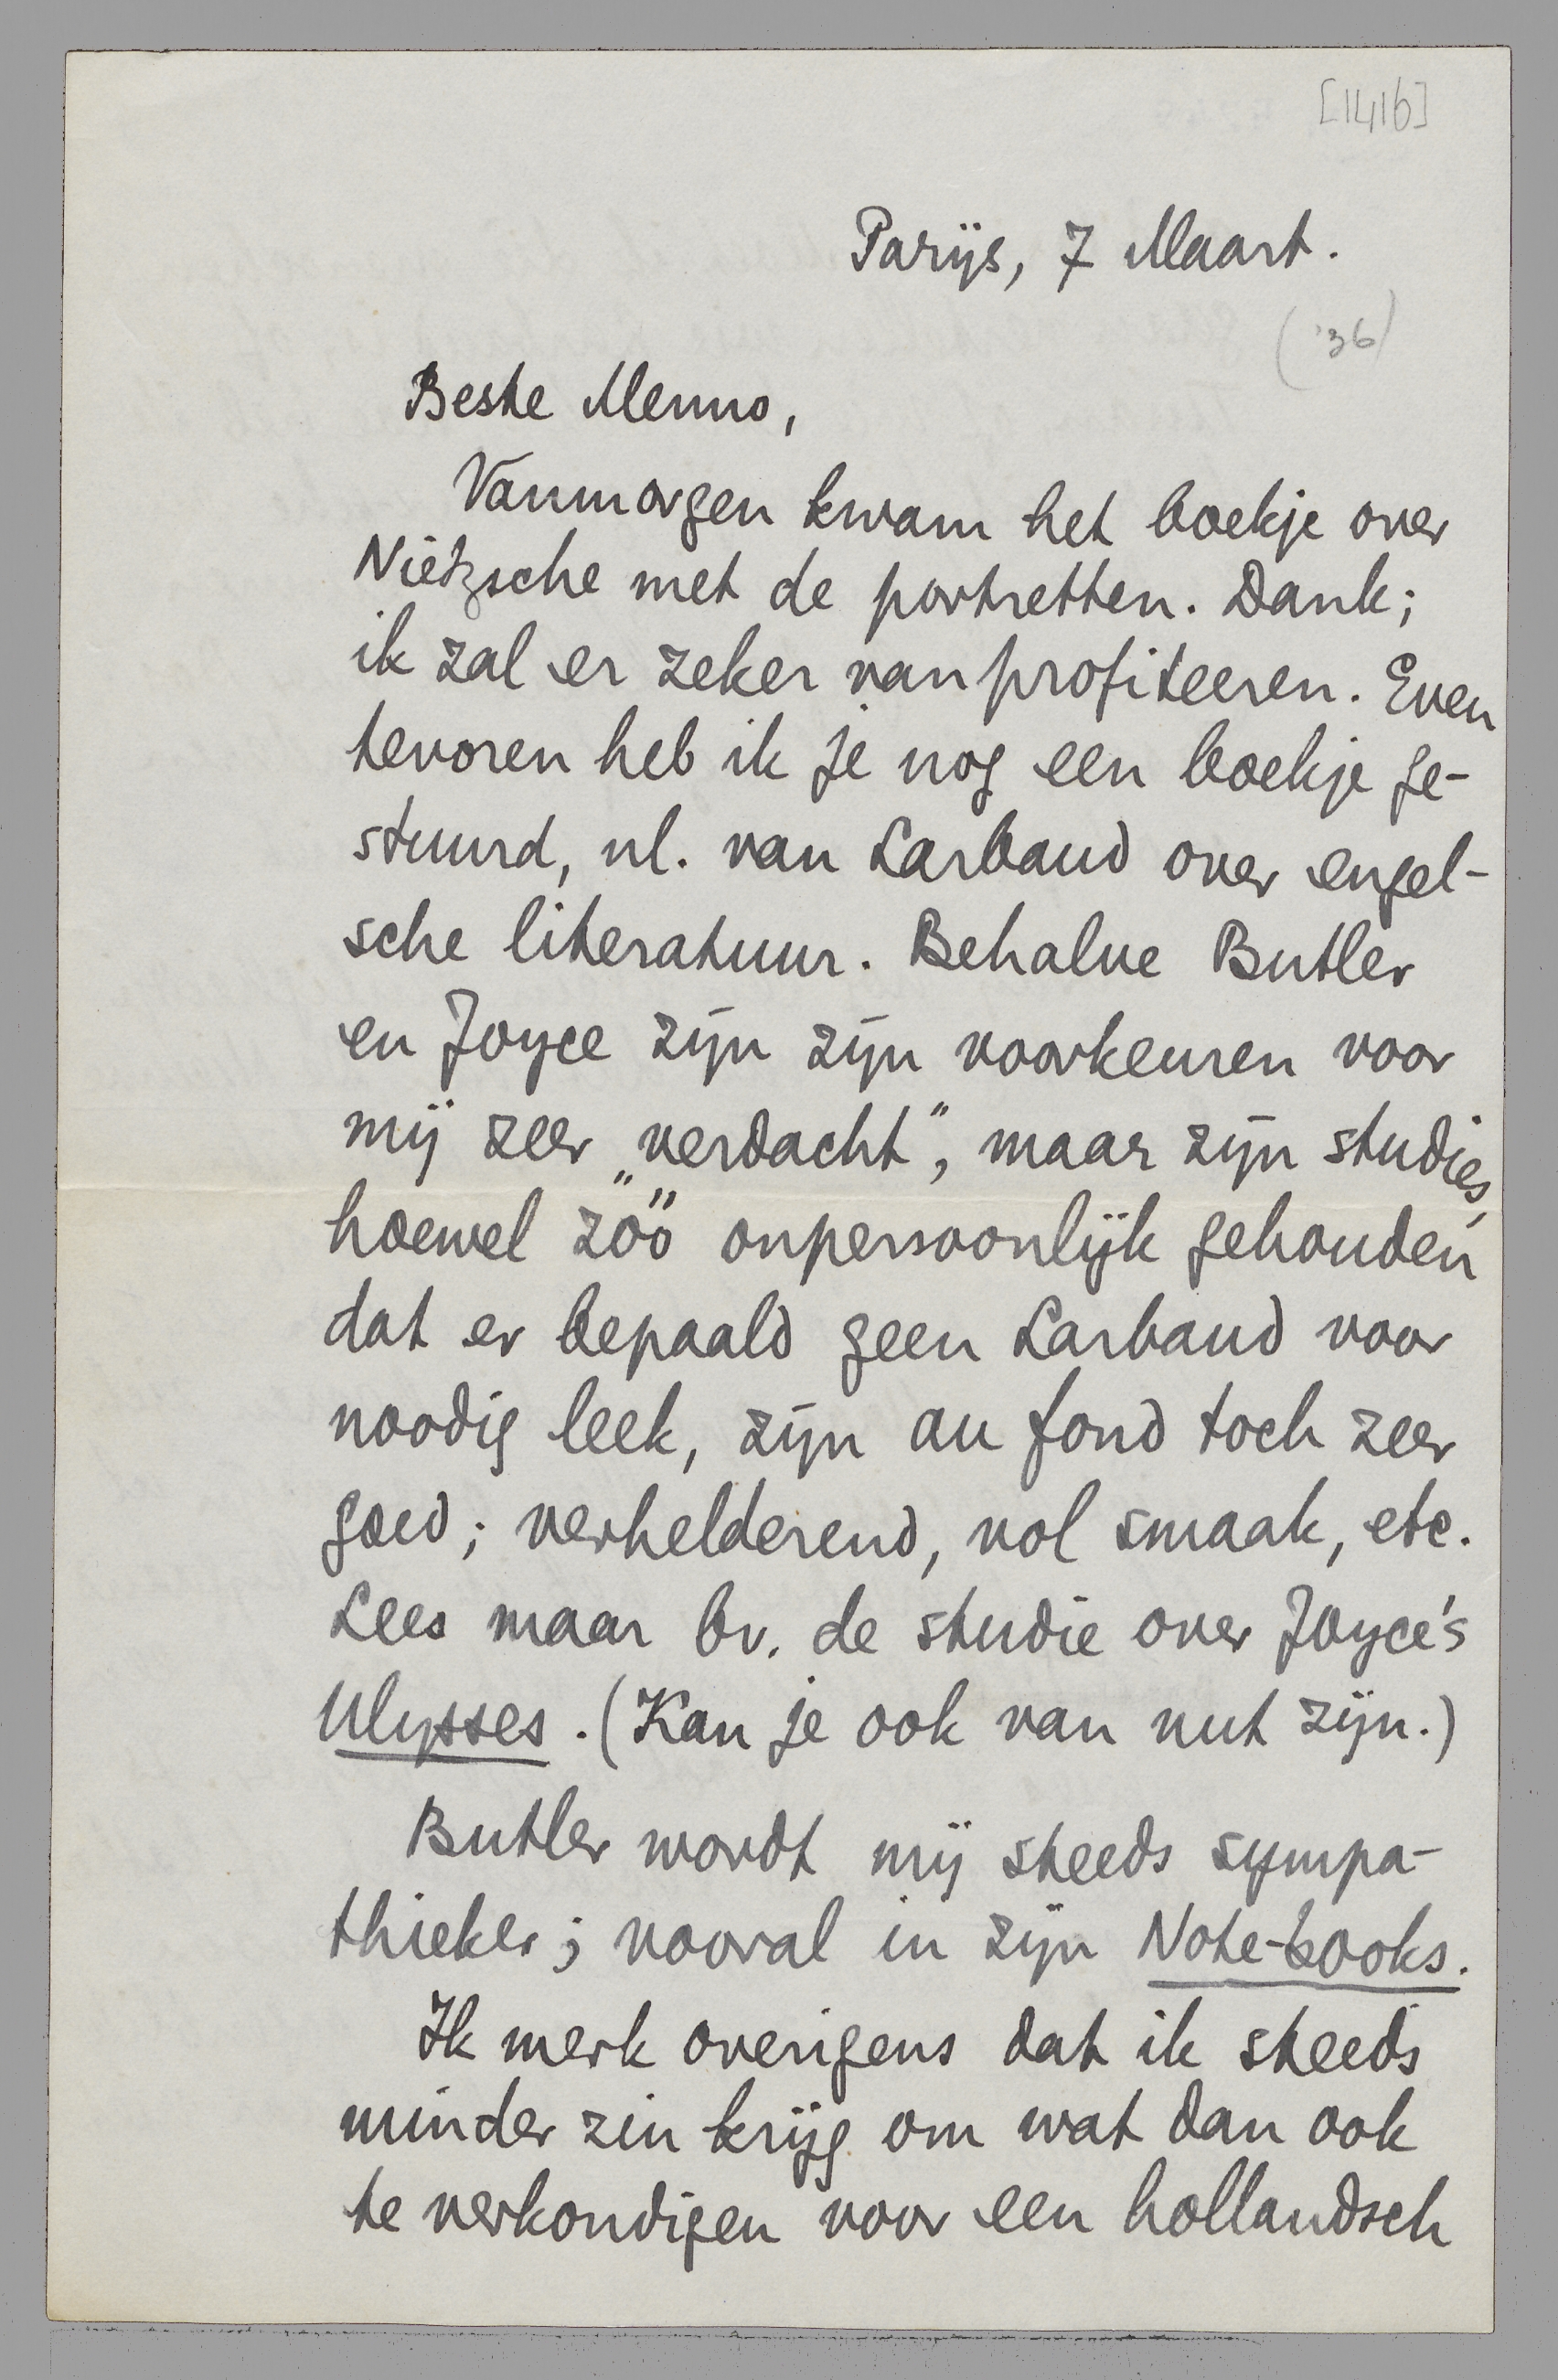 [1416]
Parijs, 7 Maart.
('36)
Beste Menno,
Vanmorgen kwam het boekje over
Nietzsche met de portretten. Dank;
ik zal er zeker van profiteeren. Even
tevoren heb ik je nog een boekje ge-
stuurd, nl. van Larbaud over engel-
sche literatuur. Behalve Butler
en Joyce zijn zijn voorkeuren voor
mij zeer „verdacht”, maar zijn studies,
hoewel zóó onpersoonlijk gehouden
dat er bepaald geen Larbaud voor
noodig leek, zijn au fond toch zeer
goed; verhelderend, vol smaak, etc.
Lees maar bv. de studie over Joyce's
Ulysses. (Kan je ook van nut zijn.)
Butler wordt mij steeds sympa-
thieker; vooral in zijn Note-books.
Ik merk overigens dat ik steeds
minder zin krijg om wat dan ook
te verkondigen voor een hollandsch